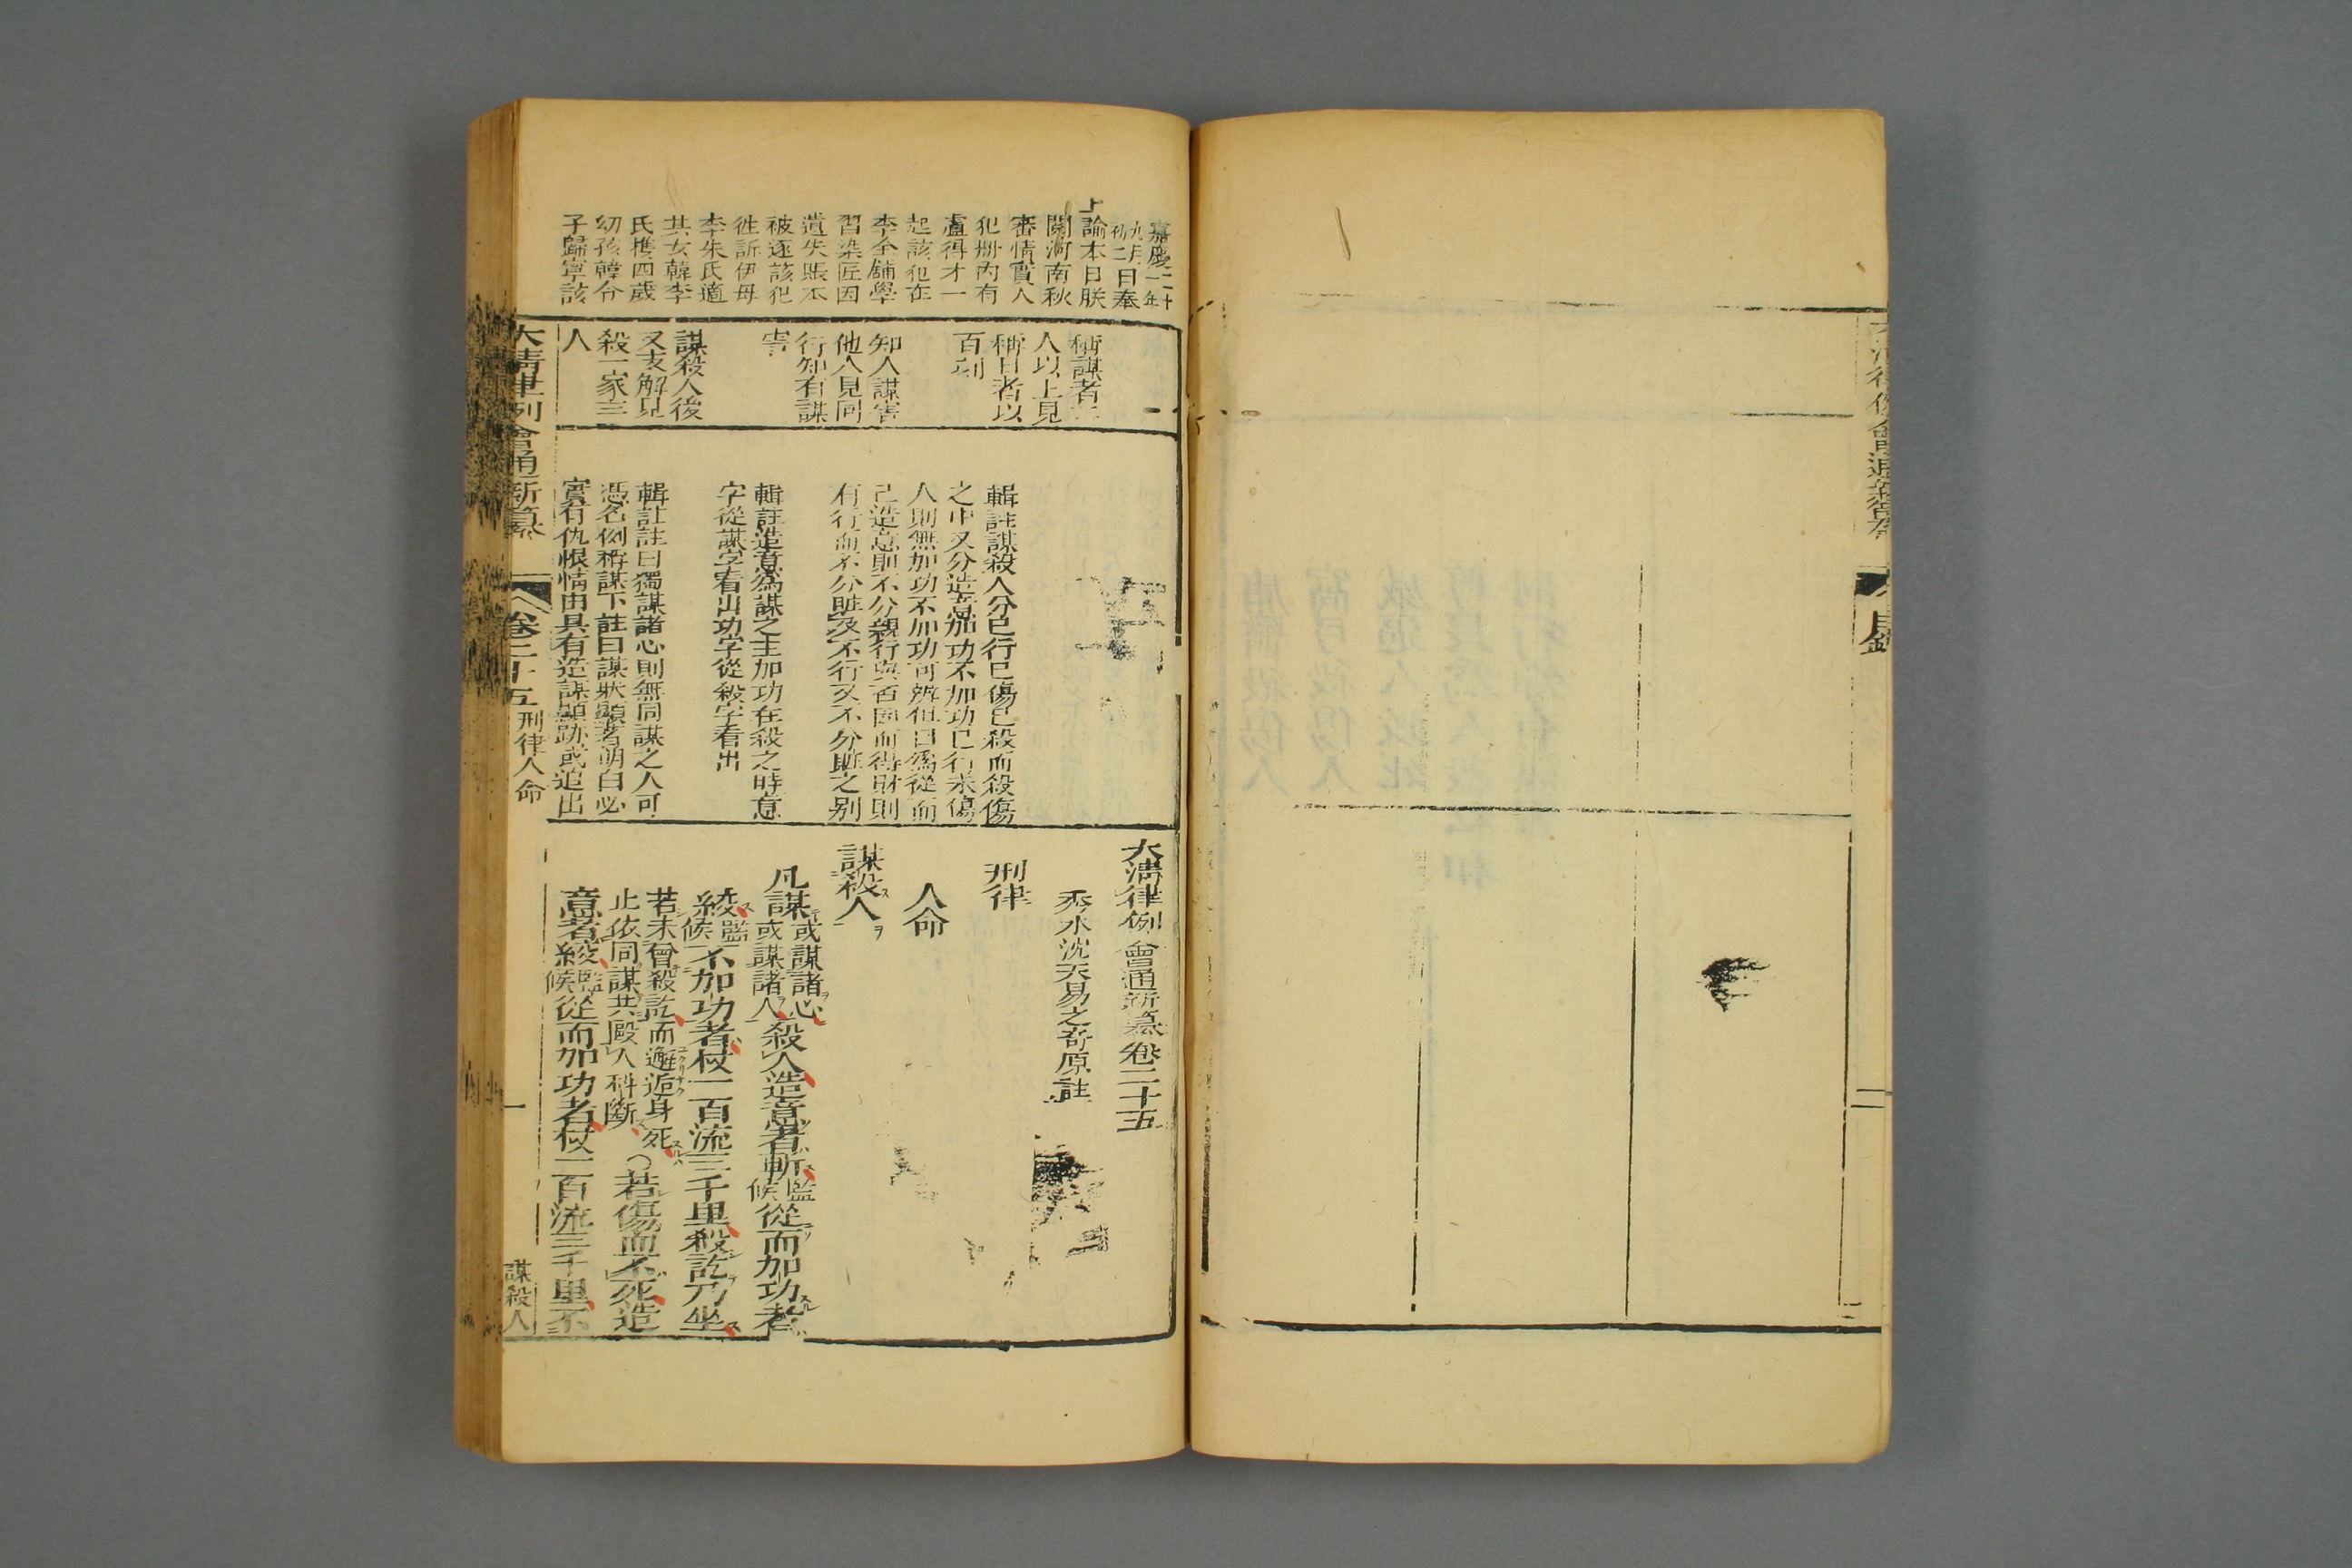 大清律例會通新纂
目錄
嘉慶二十一年
九月初二日奉
上諭本日朕
閱河南秋
審情實人
犯冊內有
盧得才一
起該犯在
李全舖學
習染匠因
遺失賬本
被逐該犯
徃訴伊毋
李朱氏適
其女韓李
氏㩗四歲
幼孩韓介
子歸寧該
稱謀者二
人以上見
稱日者以
百刻
知人謀害
他人見同
行知有謀
害
謀殺人後
又支解見
殺一家三
人
輯註謀殺人分已行已傷已殺而殺傷
之中又分造意加功不加功已行未傷
人則無加功不加功可辨但曰為從而
已造意則不分親行與否因而得財則
有行而不分賍及不行又不分賍之别
輯註造意為謀之主加功在殺之時意
字從謀字看出功字從殺字看出
輯註註曰獨謀諸心則無同謀之人可
憑名例稱謀下註曰謀狀顯著明白必
實有仇恨情由具有造謀顯跡或追出
大清律例會通新纂卷二十五
秀水沈天易之奇原註
刑律
人命
謀殺人
凡謀或謀諸心或謀諸人殺人造意者斬監候從而加功者
絞監候不加功者杖一百流三千里殺訖乃坐
若未曾殺訖而邂逅身死止依同謀共毆人科斷 若傷而不死造
意者絞監候從而加功者杖一百流三千里不
大清律例會通新纂 卷二十五 刑律人命 一 謀殺人